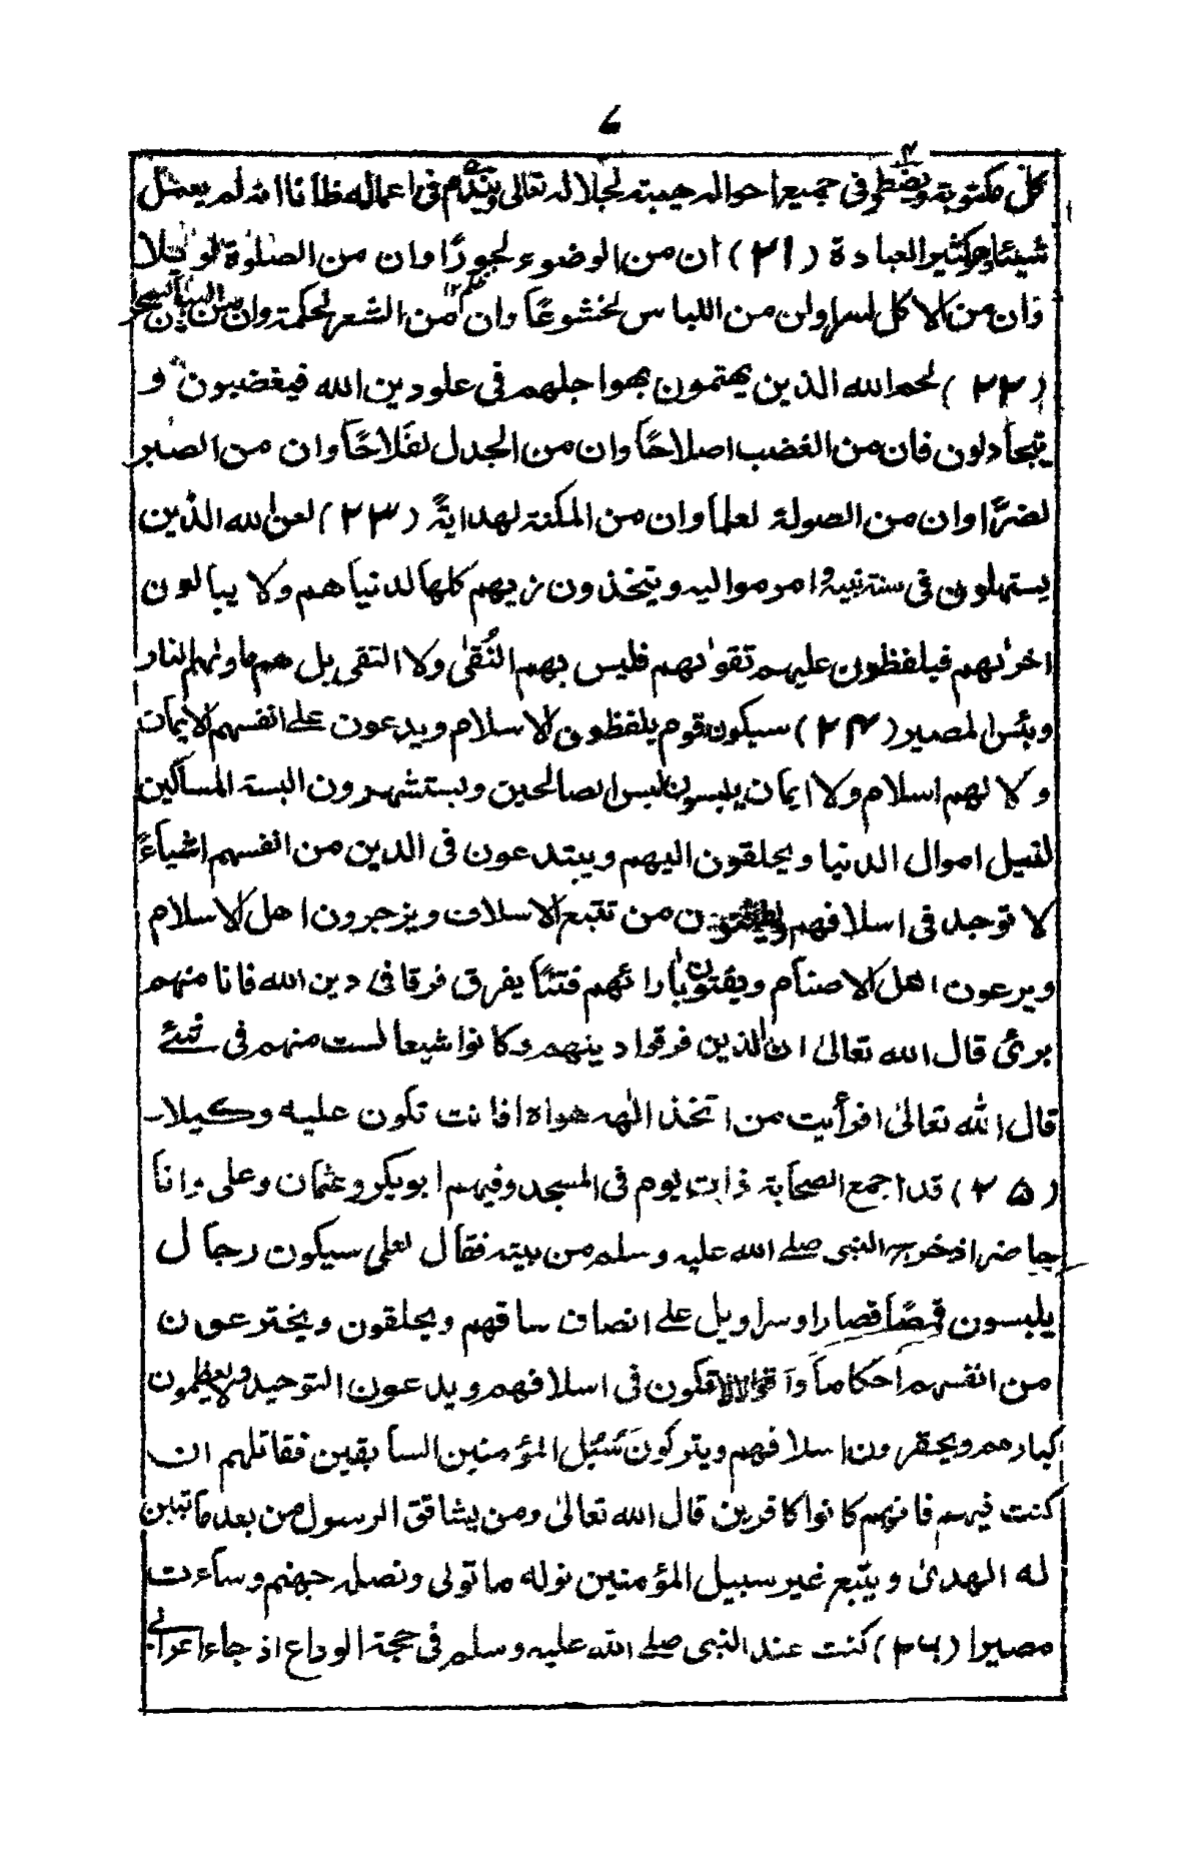 ٦
كل مكتوبة ويضطر فى جميع احواله هيبته لجلاله تعالى ويندم فى اعماله ظانا انه لم يعمل
شيئا وهو كثير العبادة (٢١) ان من الوضوء لجورًا وان من الصلوة لويلا
وان من الاكل لسرا وان من اللباس لخشوعًا وان من الشعر لحكمة وان من البيان لسحر
(٢٢) لحم الله الذين يهتمون بهواجلهم فى علو دين الله فيغضبون و
يتجادلون فان من الغضب اصلاحًا وان من الجدل لفلاحًا وان من الصبر
لضرًا وان من الصولة لعلما وان من المكنة لهداية (٢٣) لعن الله الذين
يستهلون فى سنة نبيه وامر مواليه ويتخذون زيهم كلها لدنياهم ولا يبالون
اخراهم فيلفظون عليهم تقواهم فليس بهم النُقىٰ ولا التقى بل هم ماوٰهم النار
وبئس المصير (٢٤) سيكون قوم يلفظون الاسلام ويدعون على انفسهم الايمان
ولا لهم اسلام ولا ايمان يلبسون لبس الصالحين ويستشهرون البسة المساكين
لنيل اموال الدنيا ويحلقون اليهم ويبتدعون فى الدين من انفسهم اشياءً
لا توجد فى اسلافهم من تتبع الاسلاف ويزجرون اهل الاسلام
ويرعون اهل الاصنام ويفتون بآرائهم فتنًا يفرق فرقا فى دين الله فانا منهم
برئ قال الله تعالىٰ ان الذين فرقوا دينهم وكانوا شيعا لست منهم فى شئ
قال الله تعالىٰ افرأيت من اتخذ الٰهه هواه افانت تكون عليه وكيلا۔
(٢٥) قد اجمع الصحابة ذات يوم فى المسجد وفيهم ابوبكر وعثمان وعلى وانا
حاضر اذ خرج النبى صلے الله عليه وسلم من بيته فقال لعلى سيكون رجال
يلبسون قمصًا قصارا وسراويل على انصاف ساقهم ويحلقون ويخترعون
من انفسهم احكاما واقوالا لا تكون فى اسلافهم ويدعون التوحيد ولا يعظمون
كبارهم ويحقرون اسلافهم ويتركون سُبُل المؤمنين السابقين فقاتلهم ان
كنت فيهم فانهم كانوا كافرين قال الله تعالىٰ ومن يشاقق الرسول من بعد ما تبين
له الهدىٰ ويتبع غير سبيل المؤمنين نوله ما تولى ونصله جهنم وساءت
مصيرا (٢٦) كنت عند النبى صلے الله عليه وسلم فى حجة الوداع اذ جاء اعرابى